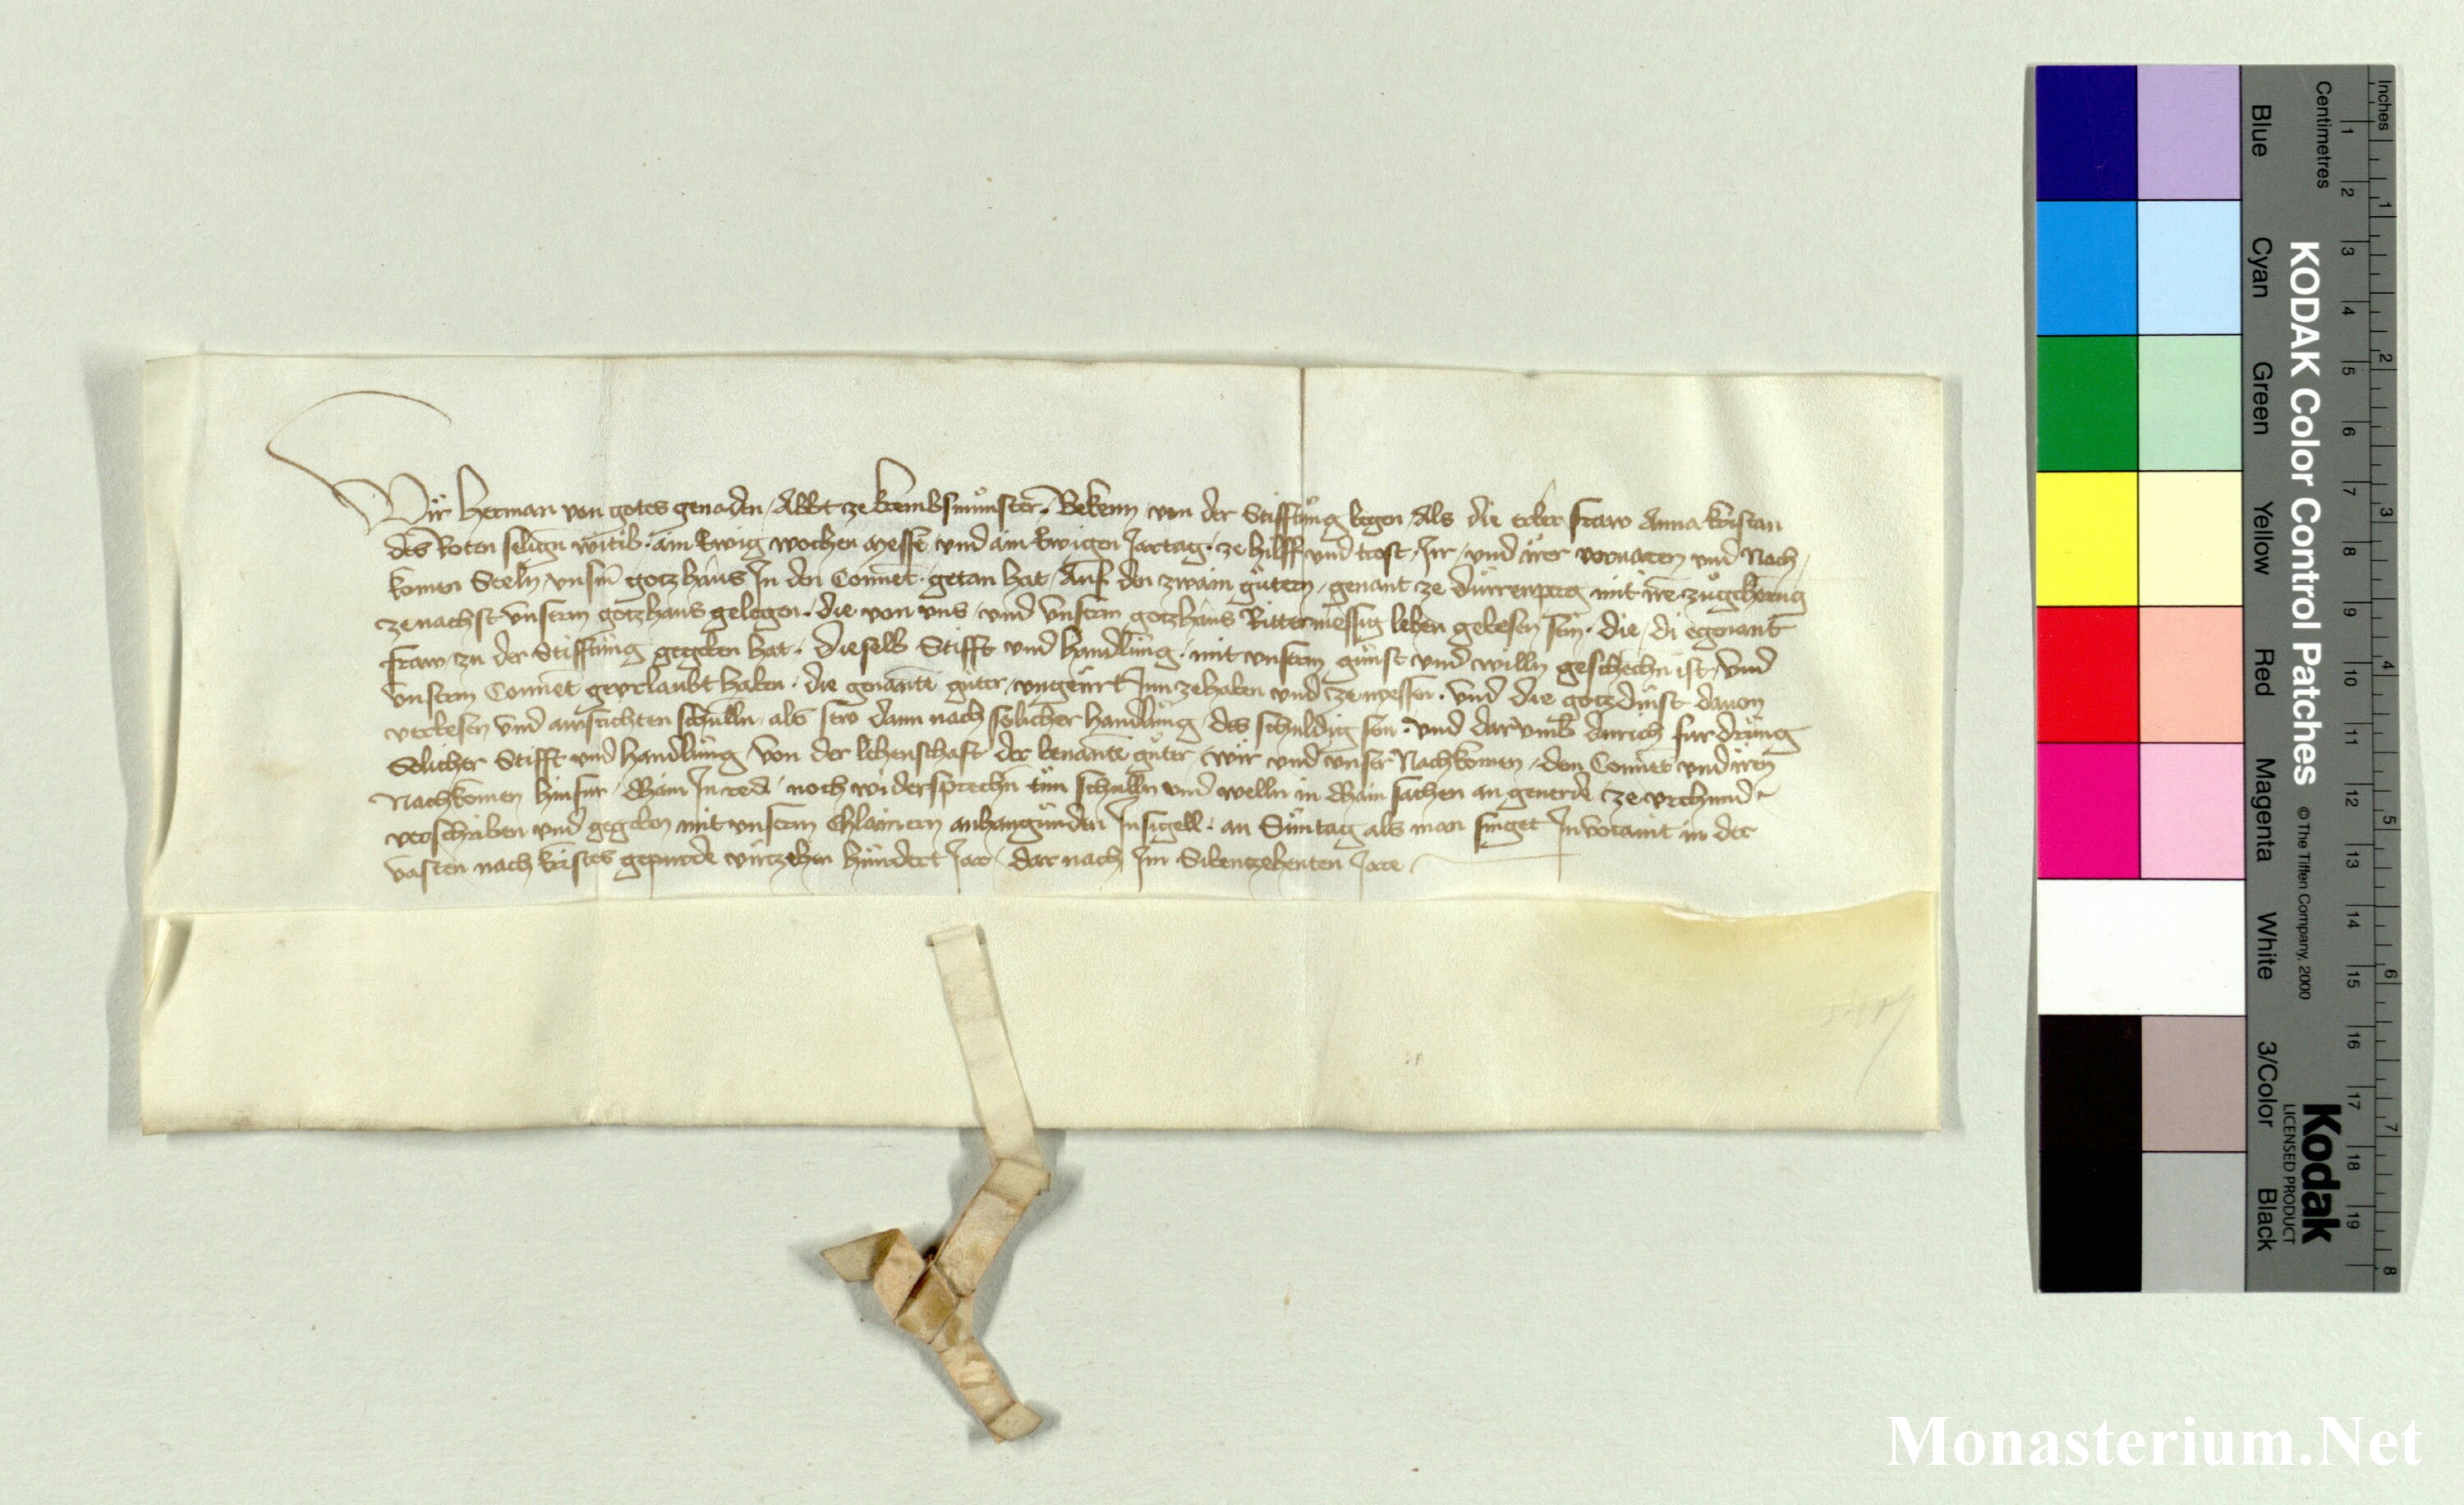 Wir Herman von gotes genaden Abbt ze krembsmunster. Bekenn von der Stifftung wegen Als die erber fraw Anna kristan
des Roten seligen witib. ain Ewig wochen messe und ain Ewigen Jartag. ze hilff und trost Jnr und irer voruaren und Nach
komen Seeln unserm gotzhaus Jn den Conuet getan hat Auf den zwain gutern genant ze durrenperg mit irer zugehorung
ze nachst unserm gotzhaus gelegen. die von uns und unserm gotzhaus Rittermessig lehen gewesen sein. die di egenant
fraw zu der Stifftung gegeben hat. dieselb Stifft und handlung. mit unserm gunst und willn geschechn ist und
unserm Conuet gevrlaubt haben. die genante guter ungeirrt Jnn zehaben und ze nyessen. und die gotzdinst dauon
verwesen und ausrichten schulln als sew dann nach solicher handlung des schuldig sen. und darumb durich furdrung
Solicher Stifft und handlung von der lehenschaft der benante guter wir und unser Nachkomen den Conuet und iren
Nachkomen hinfur kain Jnred noch widersprechn tun schulln und welln in kain sachen an geuerde ze vrchund
verschriben und gegeben mit unserm Chlainern anhangunden Jnsigell. an Suntag als man singet Jnuocauit in der
vasten nach kristes gepurde virtzehen hundert Jar dar nach Jm Sibentzehenten Jare
Inches
Centimetres
1 2 3 4 5 6 7 8 9 10 11 12 13 14 15 16 17 18 19
1 2 3 4 5 6 7 8
KODAK Color Control Patches
© The Tiffen Company, 2000
Kodak
LICENSED PRODUCT
Blue
Cyan
Green
Yellow
Red
Magenta
White
3/Color
Black
Monasterium.Net